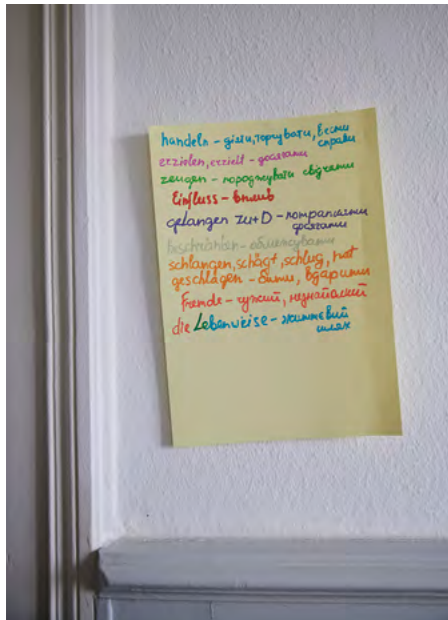 handeln – діяти, торгувати, вести
справи
erzielen, erzielt – досягати
zeugen – породжувати свідчити
Einfluss – вплив
gelangen zu+D – потрапляти
досягати
beschränken – обмежувати
schlangen, schägt, schlug, hat
geschlagen – бити, вдарити
Fremde – чужий, незнайомий
die Lebenweise – життєвий
шлях